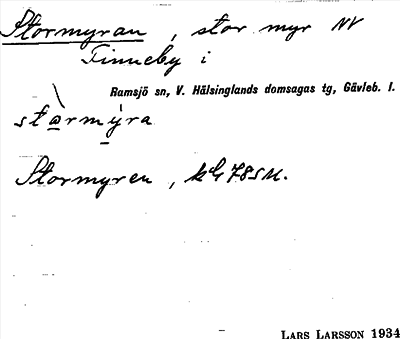 Stormyran, stor myr NV
Finneby i
Ramsjö sn, V. Hälsinglands domsagas tg, Gävleb. l.
stormýra
Stormyren, kG 785 M.
LARS LARSSON 1934